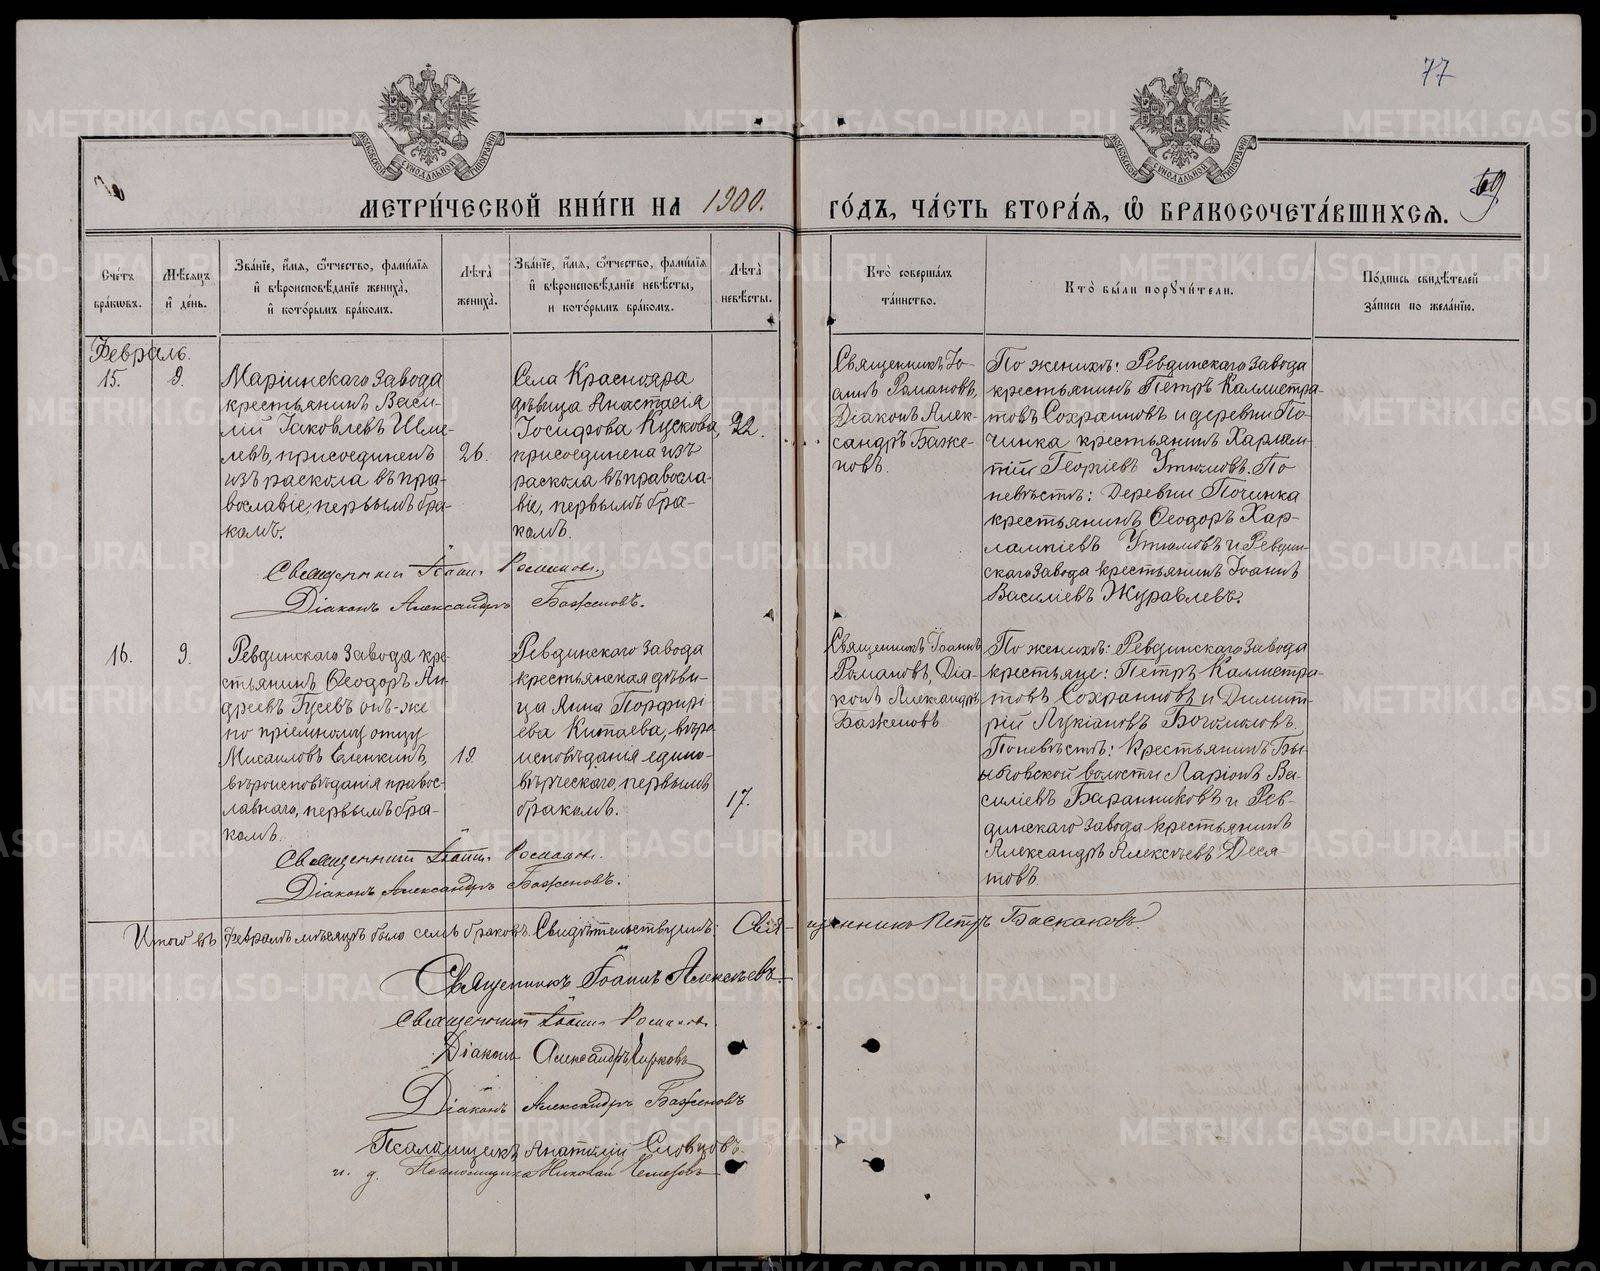 77
69
МОСКОВСКОЙ СѴНОДАЛЬНОЙ ТИПОГРАФІИ
МОСКОВСКОЙ СѴНОДАЛЬНОЙ ТИПОГРАФІИ
МЕТРИ́ЧЕСКОЙ КНИ́ГИ НА 1900.
ГО́ДЪ, ЧА́СТЬ ВТОРА́Я, Ѡ҆ БРАКОСОЧЕТА́ВШИХСЯ.
Сче́тъ
бра́ковъ.
Мѣ́сяцъ
и҆ де́нь.
Зва́нїе, и҆́мя, ѻ҆́тчество, фами́лїя
и҆ вѣроисповѣ́данїе жениха̀,
и҆ кото́рымъ бра́комъ.
Лѣта̀
жениха̀.
Зва́нїе, и҆́мя, ѻ҆́тчество, фами́лїя
и҆ вѣроисповѣ́данїе невѣ́сты,
и кото́рымъ бра́комъ.
Лѣта̀
невѣ́сты.
Кто̀ соверша́лъ
та́инство.
Кто̀ бы́ли порꙋчи́тели.
По́дпись свидѣ́телей
за́писи по жела́нїю.
Февраль.
15.
9.
Маріинскаго завода
крестьянинъ Васи-
лій Іаковлевъ Ивле-
левъ, присоединенъ
изъ раскола въ пра-
вославіе, первымъ бра-
комъ.
26.
Села Краснояра
дѣвица Анастасія
Іосифова Кускова,
присоединена изъ
раскола въ правосла-
віе, первымъ бра-
комъ.
22.
Священникъ Іо-
аннъ Романовъ,
Діаконъ Алек-
сандръ Баже-
новъ.
По женихѣ: Ревдинскаго завода
крестьянинъ Петръ Каллистра-
товъ Сохранновъ и деревни По-
чинка крестьянинъ Харлам-
пій Георгіевъ Утюмовъ. По
невѣстѣ: Деревни Починка
крестьянинъ Ѳеодоръ Хар-
лампіевъ Утюмовъ и Ревдин-
скаго завода крестьянинъ Іоаннъ
Василіевъ Журавлевъ.
Священникъ Іоаннъ Романовъ.
Діаконъ Александръ Баженовъ.
16.
9.
Ревдинскаго завода кре-
стьянинъ Ѳеодоръ Ан-
дреевъ Гусевъ онъ-же
по пріемному отцу
Мисаиловъ Еленкинъ,
вѣроисповѣданія правос-
лавнаго, первымъ бра-
комъ.
19.
Ревдинскаго завода
крестьянская дѣви-
ца Анна Порфирі-
ева Китаева, вѣро
исповѣданія едино-
вѣрческаго, первымъ
бракомъ.
17.
Священникъ Іоаннъ
Романовъ, Діа-
конъ Александръ
Баженовъ
По женихѣ: Ревдинскаго завода
крестьяне: Петръ Каллистра-
товъ Сохранновъ и Димит-
рій Лукіановъ Богомоловъ.
По невѣстѣ: Крестьянинъ Бы-
ньговской волости Ларіонъ Ва-
силіевъ Баранниковъ и Рев-
динскаго завода крестьянинъ
Александръ Алексѣевъ Деся-
товъ.
Священникъ Іоаннъ Романовъ.
Діаконъ Александръ Баженовъ.
Итого въ Февралѣ мѣсяцѣ было семь браковъ. Свидѣтельствуемъ: Священникъ Петръ Баскаковъ.
Священникъ Іоаннъ Алексѣевъ.
Священникъ Іоаннъ Романовъ.
Діаконъ Александръ Чирковъ
Діаконъ Александръ Баженовъ
Псаломщикъ Анатолій Словцовъ.
и. д. Псаломщика Николай
METRIKI.GASO-URAL.RU